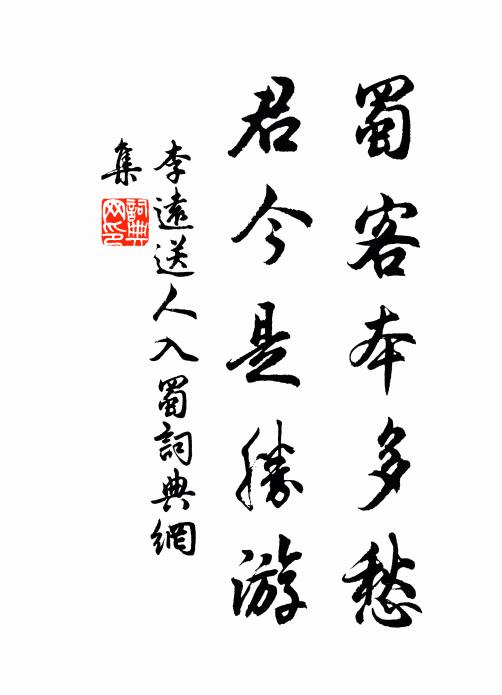 蜀客本多愁
君今是勝游
李遠送人入蜀詞典網
集
詞典
网印